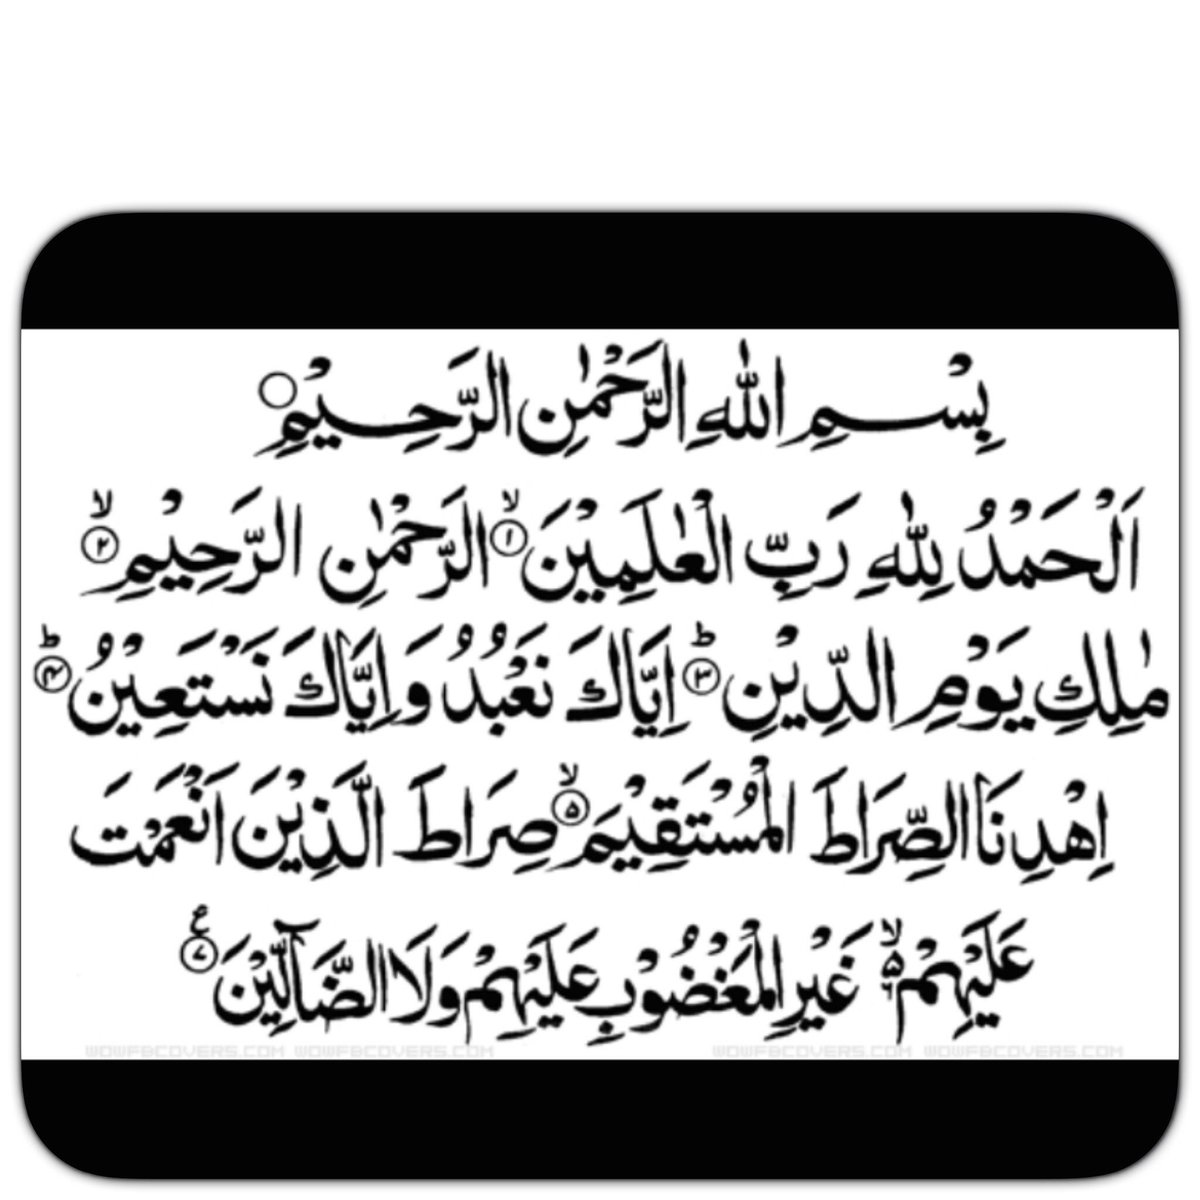 بِسْمِ اللهِ الرَّحْمٰنِ الرَّحِيْمِ ○
اَلْحَمْدُ لِلّٰهِ رَبِّ الْعٰلَمِيْنَ ۙ﴿۱﴾ الرَّحْمٰنِ الرَّحِيْمِ ۙ﴿۲﴾
مٰلِكِ يَوْمِ الدِّيْنِ ؕ﴿۳﴾ اِيَّاكَ نَعْبُدُ وَاِيَّاكَ نَسْتَعِيْنُ ؕ﴿۴﴾
اِهْدِنَا الصِّرَاطَ الْمُسْتَقِيْمَ ۙ﴿۵﴾ صِرَاطَ الَّذِيْنَ اَنْعَمْتَ
عَلَيْهِمْ ۙ۬ۦ غَيْرِ الْمَغْضُوْبِ عَلَيْهِمْ وَلَا الضَّآلِّيْنَ ﴿۷﴾ ع
WOWFBCOVERS.COM WOWFBCOVERS.COM WOWFBCOVERS.COM WOWFBCOVERS.COM